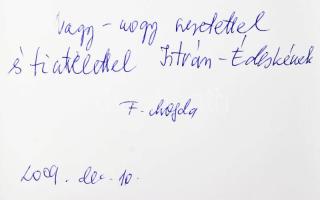 Nagy-nagy szeretettel
és tisztelettel István-Édeskének
F. Magda
2009. dec. 10.